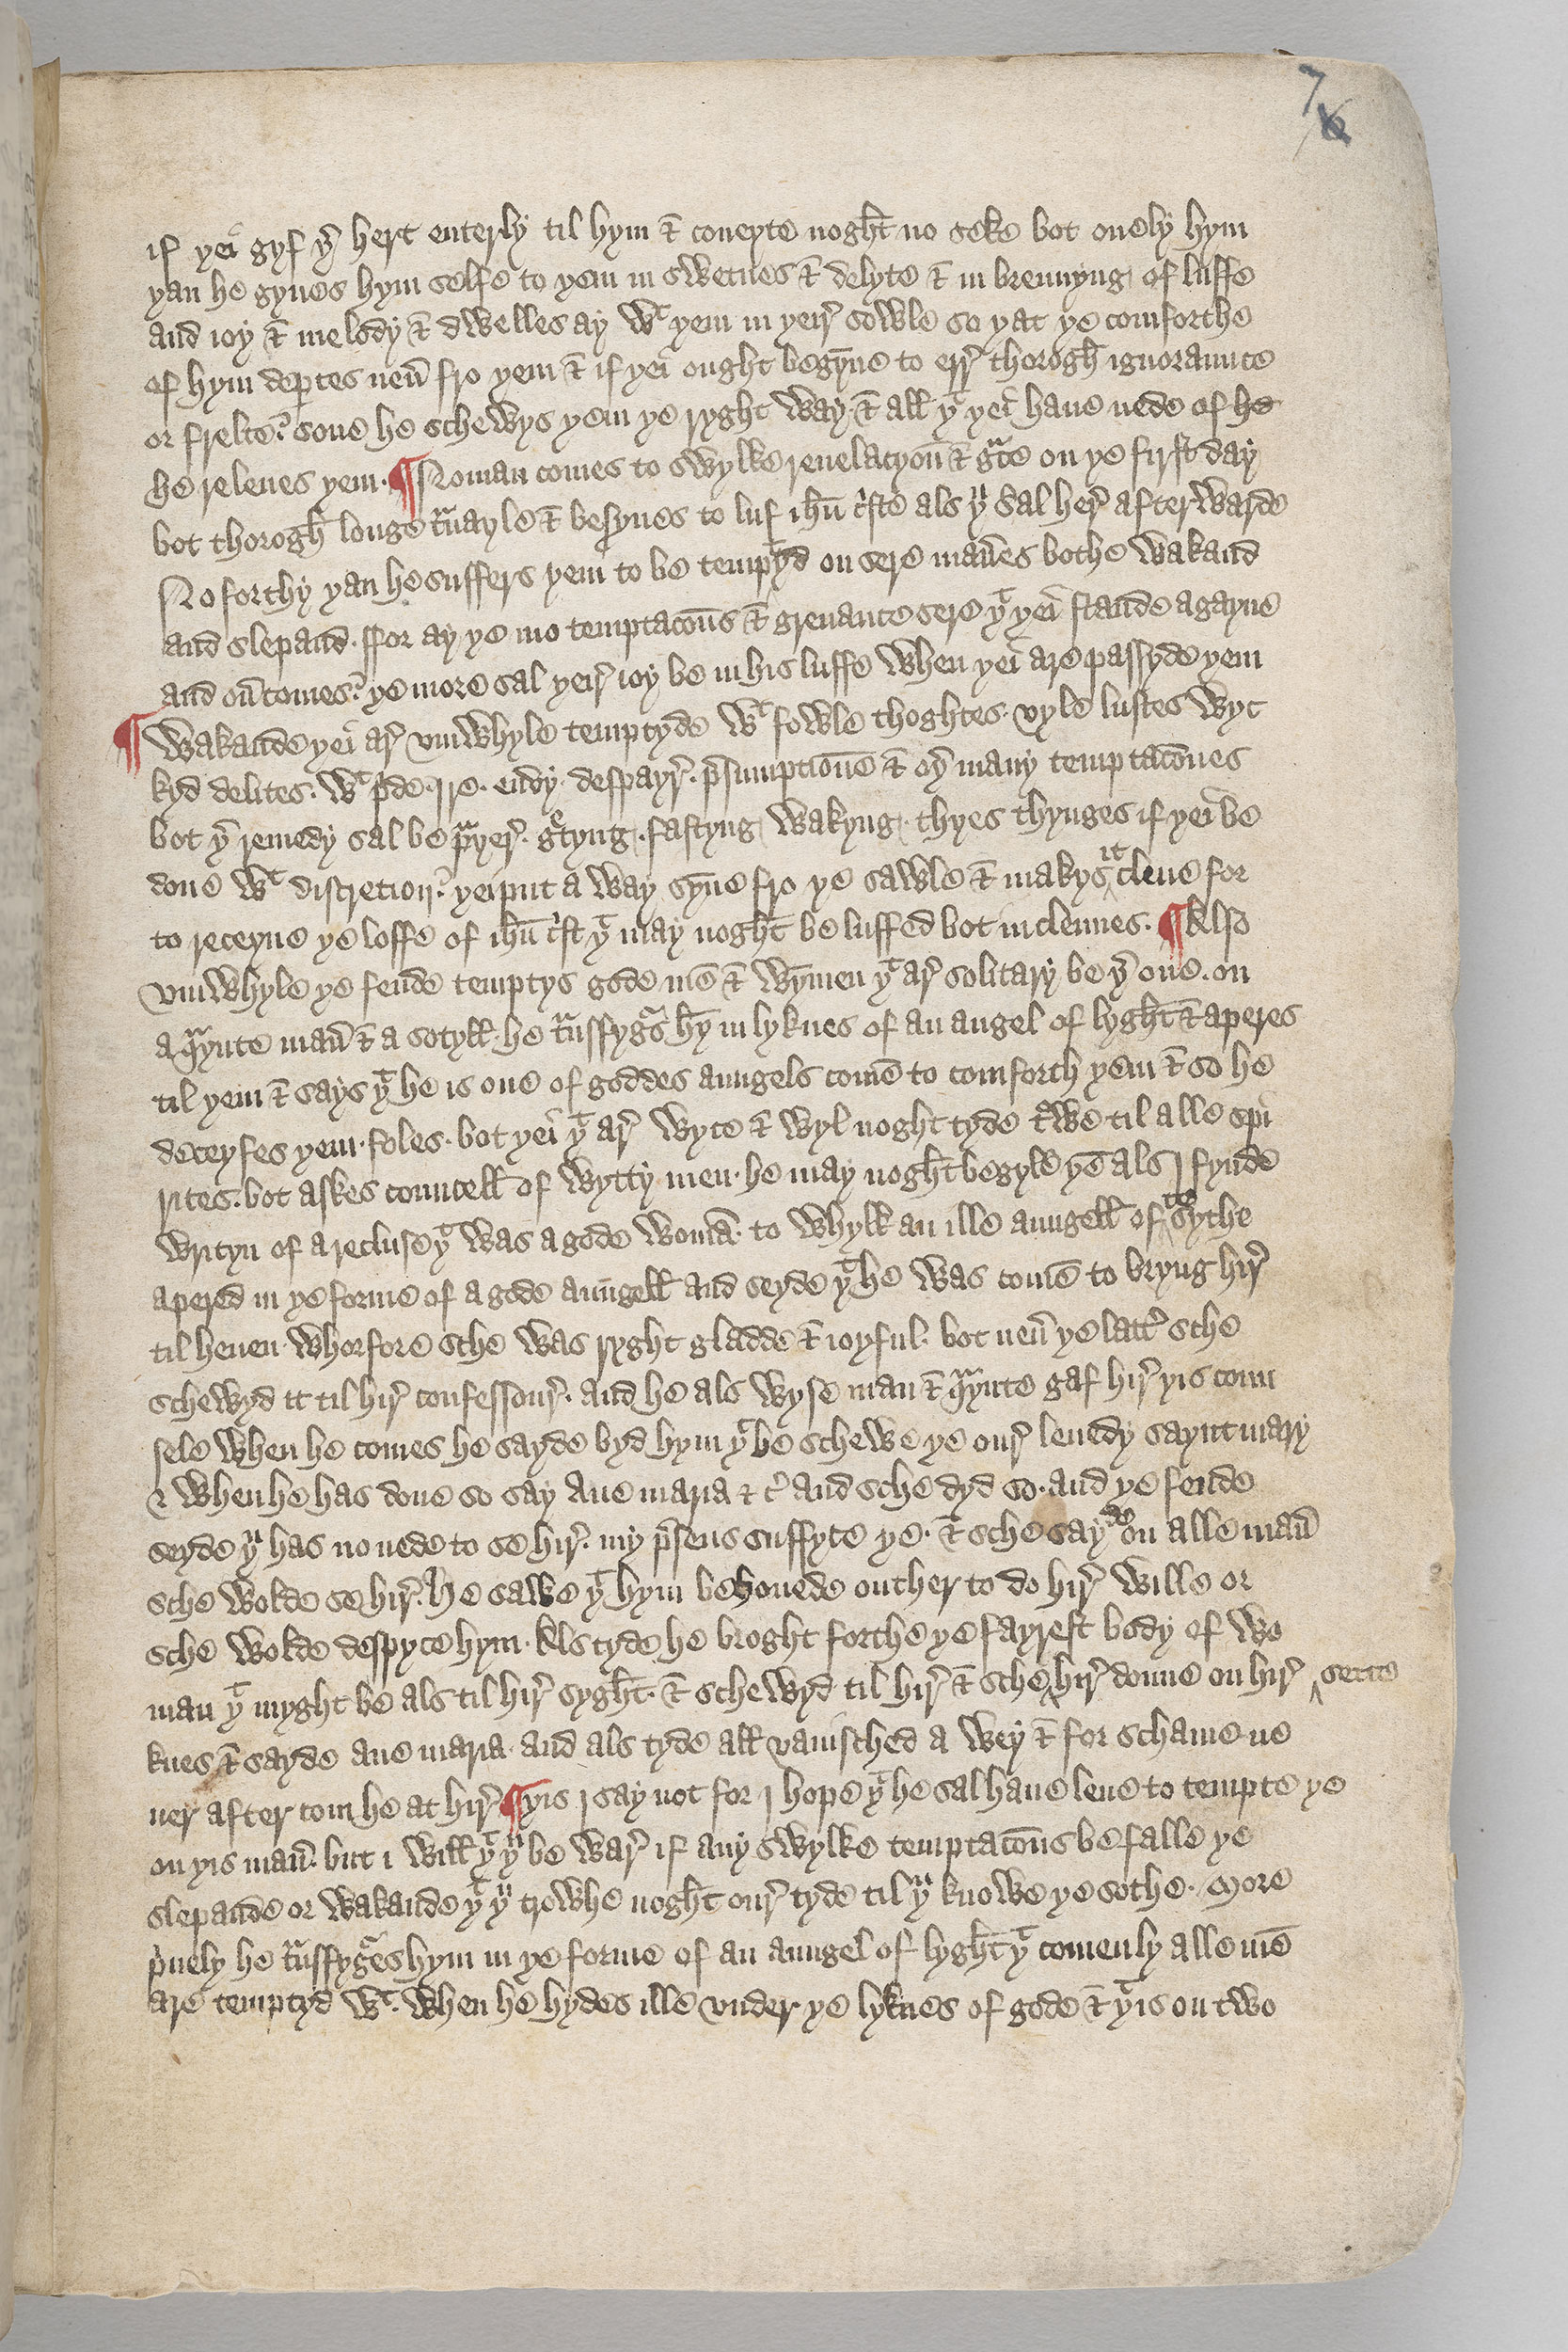 7 6
if yei gyf yr hert enterly til hym & coueyte noght no seke bot onely hym
yan he gyues hym selfe to yem in swetnes & delyte & in brennyng of luffe
and ioy & melody & dwelles ay wt yem in yeir sowle so yat ye comforthe
of hym deptes neu̅ fro yem & if yei ought begyn̅e to err thorogh ignoraunce
or frelte. sone he schewys yem ye ryght way & all yt yei haue nede of he
he releues yem. ¶ No man comes to swylke reuelacyon̅ & gace on ye first day
bot thorogh longe tauayle & besynes to luf ihu̅ criste als yu sal her afterwarde
No forthy yan he suffers yem to be temptyd on sere man̅es bothe wakand
and slepand. ffor ay ye mo temptaco̅ns & greuance sere yt yei stande agayne
and ou̅comes. ye more sal yeir ioy be in his luffe when yei are passyde yem
¶ Wakande yei ar vmwhyle temptyde wt fowle thoghtes. vyle lustes wyc
kyd delites. wt pide. ire. enuy. despayr. psumptione & oyr many temptaco̅nes
bot yr remedy sal be prayer. gretyng. fastyng wakyng. thyes thynges if yei be
done wt discrecion. yei put a way syn̅e fro ye sawle & makys it clene for
to receyue ye loffe of ihu̅ crist yt may noght be luffed bot in clennes. ¶ Also
vmwhyle ye fende temptys gode me̅ & wym̅en yt ar solitary be yr one. on
a quaynte man̅ & a sotyll. he taussfygs hy̅ in lyknes of an angel of lyght & aperes
til yem & says yt he is one of goddes aungels come̅ to comforth yem & so he
deceyfes yem. foles. bot yei yt ar wyce & wyl noght tyde towe til alle spi
rites. bot askes councell of wytty men. he may noght begyle ye̅ als I fynde
writyn of a recluse yt was a gode woma̅. to whylk an ille aungell of te sythe
apered in ye forme of a gode aungell and seyde yt he was come̅ to bryng hir
til heuen wherfore sche was ryght gladde & ioyful. bot neu̅ ye latt sche
schewyd it til hir confessour. and he als wyse man & quaynte gaf hir yis coun
sele when he comes he sayde byd hym yt he schewe ye our leuedy saynt mary
& when he has done so say Aue maria & c and sche dyd so. and ye fende
seyde yu has no nede to se hir. my psens suffyce ye. & sche sayde on alle man̅
sche wolde se hir. He sawe yt hym behouede outher to do hir wille or
sche wolde despyce hym. Als tyde he broght forthe ye fayrest body of wo
man yt myght be als til hir syght. & schewyd til hir & sche hir doune on hir sette
knes & sayde aue maria. and als tyde all vanisched a wey & for schame ne
uer after com he at hir ¶ yis I say not for I hope yt he sal haue leue to tempte ye
on yis man̅. but i will yt yu be war if any swylke temptaco̅ns be falle ye
slepande or wakande yt yu trowhe noght our tyde til yu knowe ye sothe. More
piuely he taussfyges hym in ye forme of an aungel of lyght yt comenly alle me̅
are temptyd wt. when he hydes ille vnder ye lyknes of gode & yt is on two